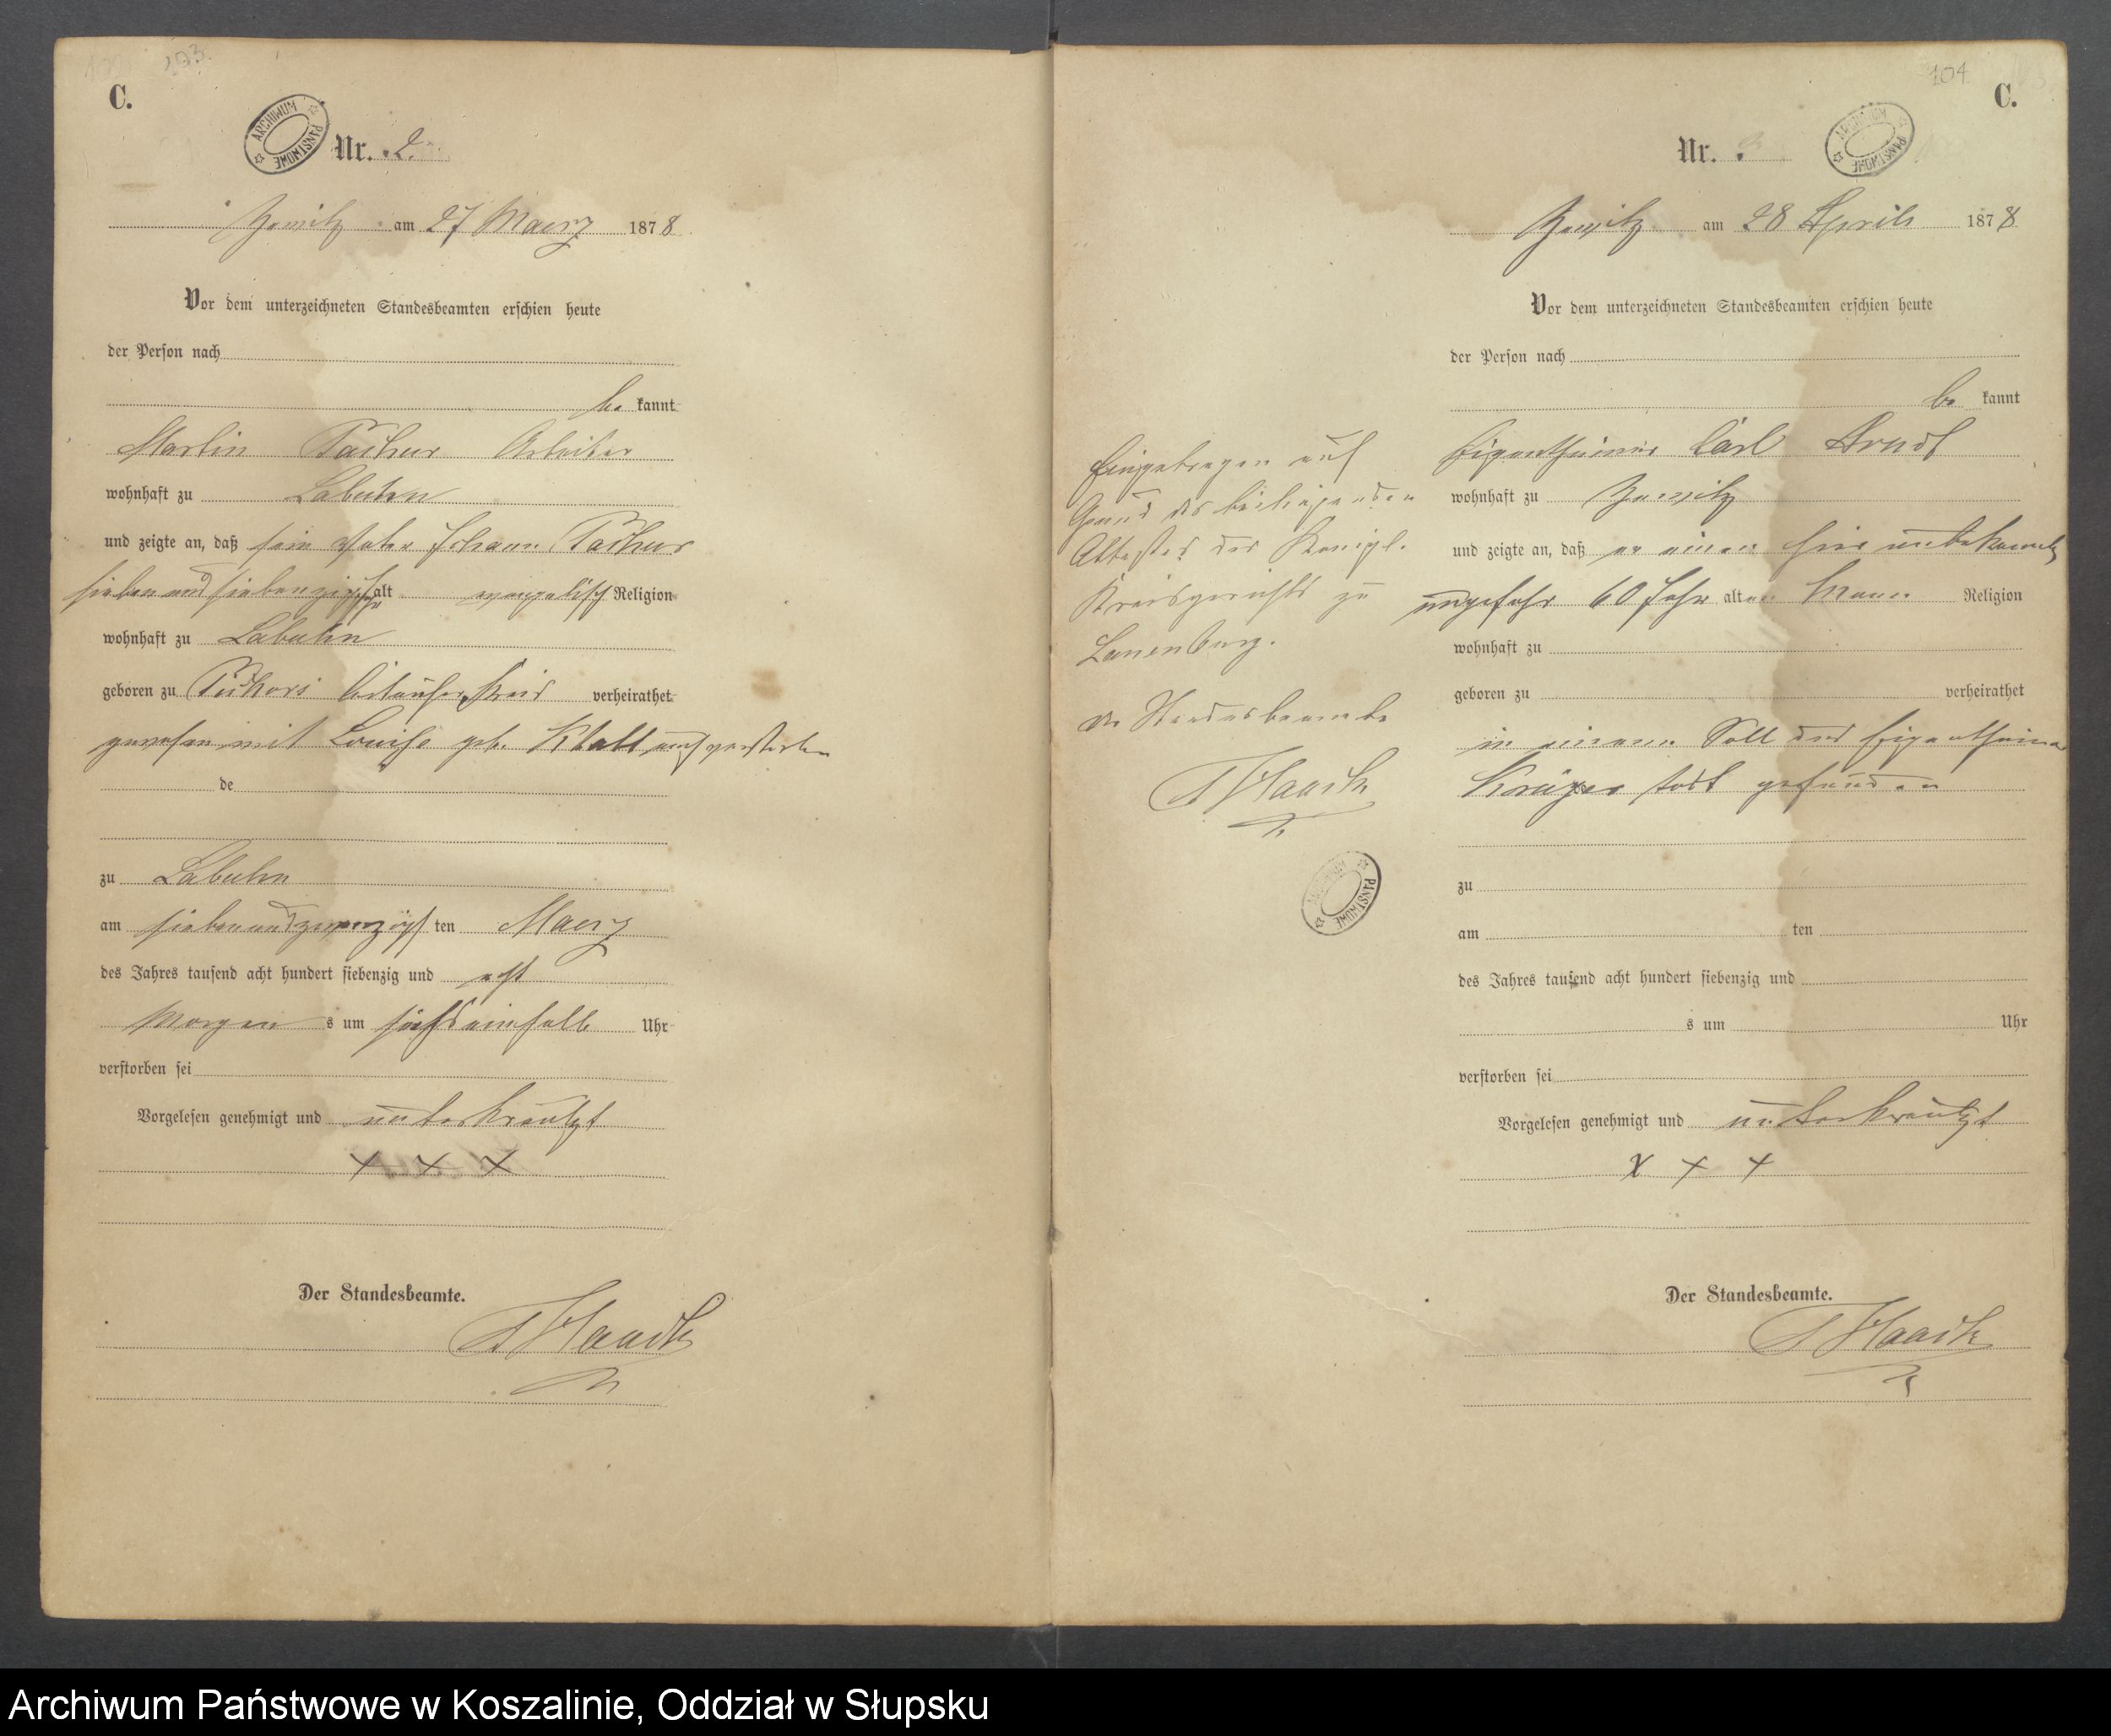 C.
ARCHIWUM PAŃSTWOWE
Nr. 2.
am 27 Maerz 1878
Vor dem unterzeichneten Standesbeamten erschien heute
der Person nach
be kannt
Martin Arbeiter
wohnhaft zu Labuhn
und zeigte an, daß sein Vater Johann
sieben und siebenzig Jahr alt evangelisch Religion
wohnhaft zu Labuhn
geboren zu Kreis verheirathet
gewesen mit Louise geb. Klatt
de
zu Labuhn
am siebenundzwanzigsten ten Maerz
des Jahres tausend acht hundert siebenzig und acht
Morgen s um Uhr
verstorben sei
Vorgelesen genehmigt und unterkreutzt
+ + +
Der Standesbeamte.
Haack
104
C.
ARCHIWUM PAŃSTWOWE
Nr.
am 28 Aprils 1878
Vor dem unterzeichneten Standesbeamten erschien heute
der Person nach
be kannt
Eigenthümer Carl Arndt
wohnhaft zu
und zeigte an, daß er einen hier unbekannten
ungefehr 60 Jahr alten Mann Religion
wohnhaft zu
geboren zu verheirathet
in einem Soll des Eigenthümer
Krüger todt gefunden
zu
am ten
des Jahres tausend acht hundert siebenzig und
s um Uhr
verstorben sei
Vorgelesen genehmigt und unterkreutzt
+ + +
Der Standesbeamte.
Haack
Eingetragen auf
Grund des beiliegenden
Attestes des Königl.
Kreisgerichts zu
Lauenburg.
Der Standesbeamte
Haack
ARCHIWUM PAŃSTWOWE
Archiwum Państwowe w Koszalinie, Oddział w Słupsku